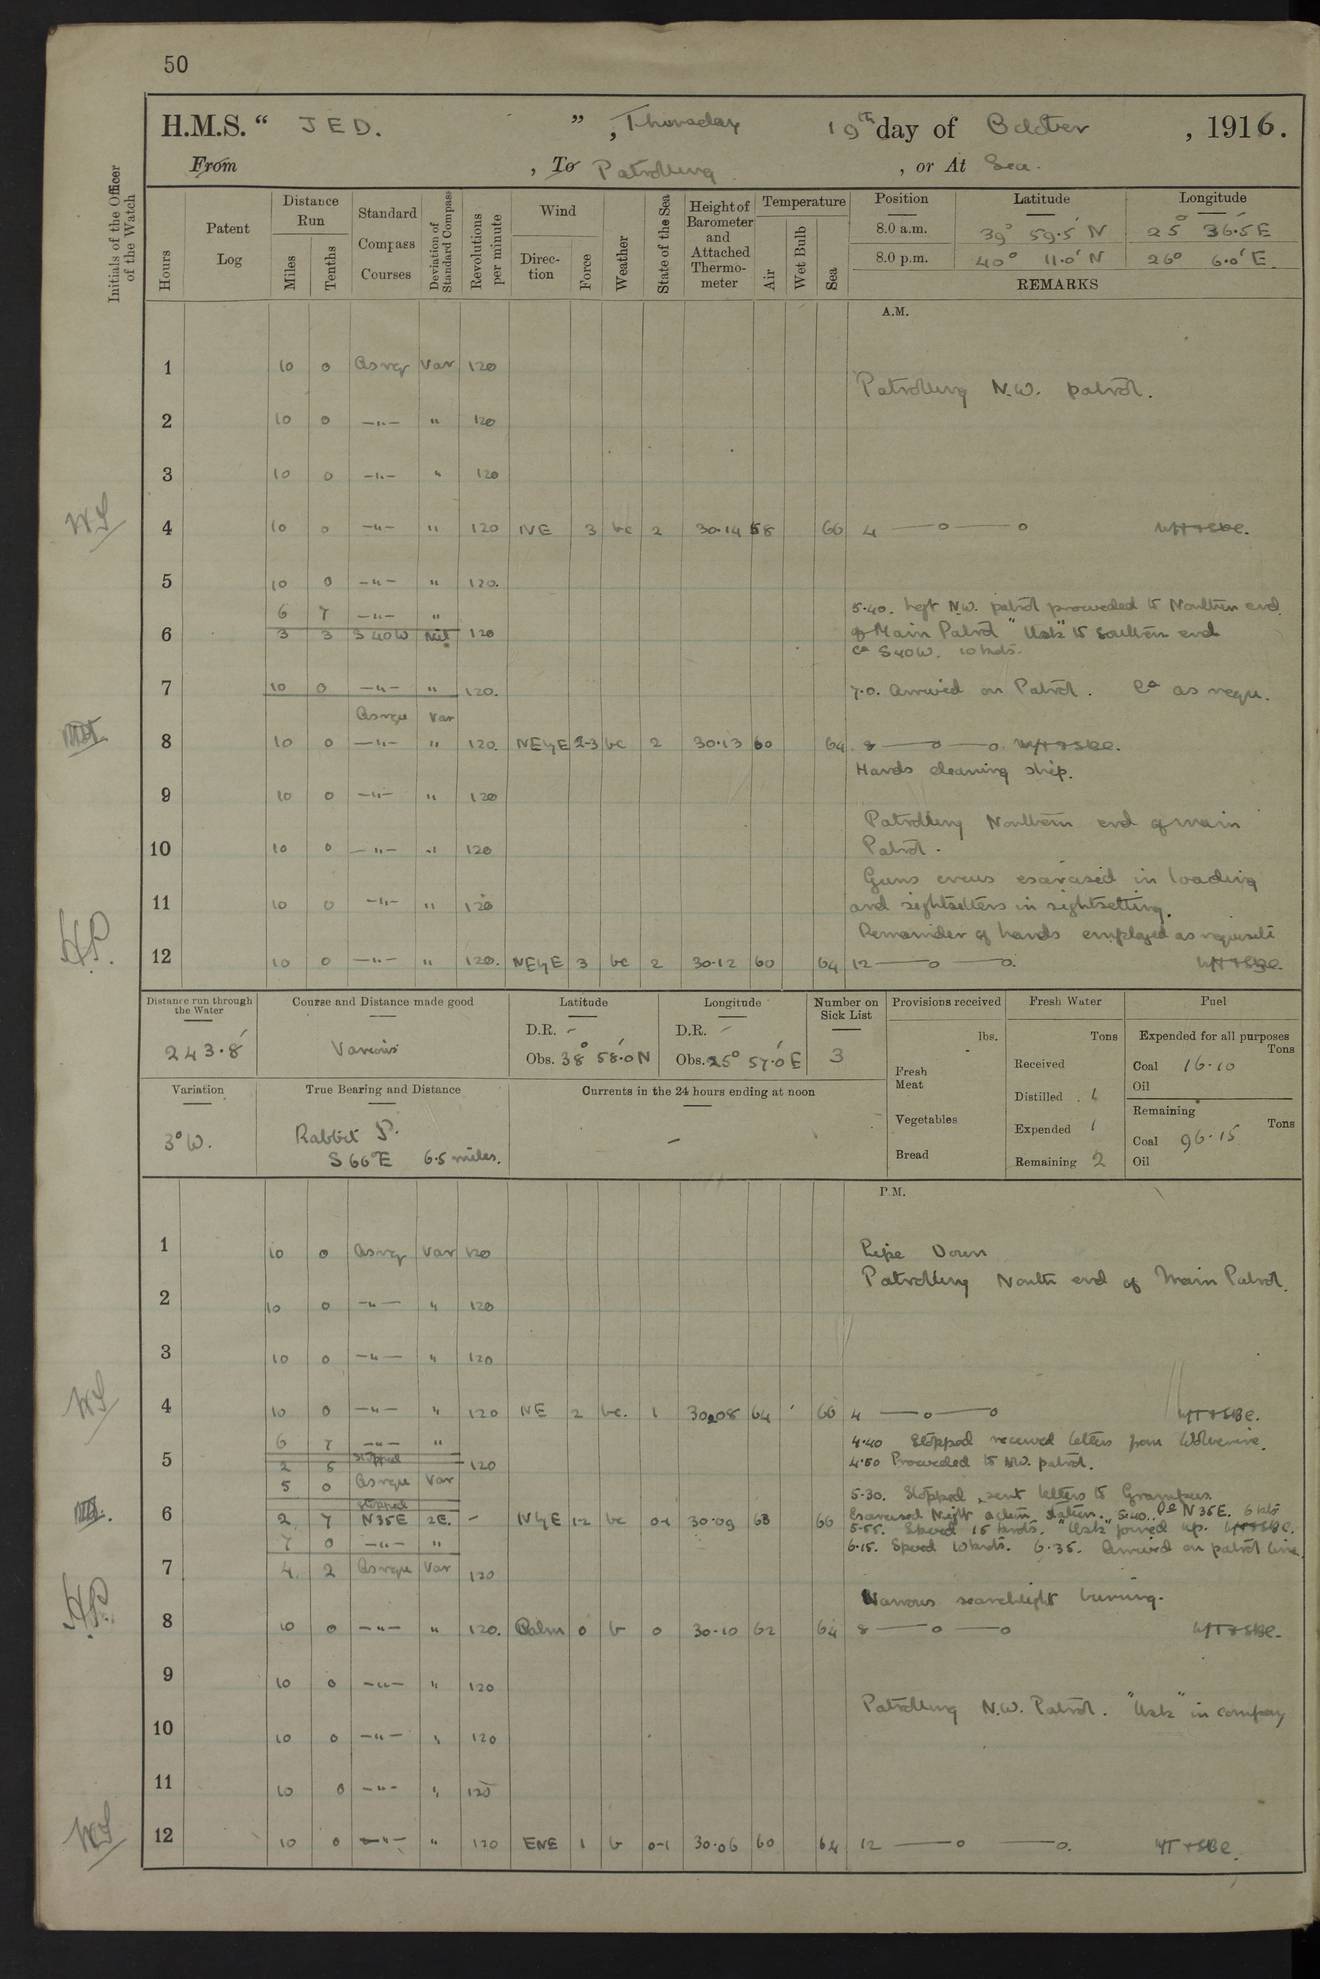 50
H.M.S. “ JED. ” , Thursday 19th day of October , 1916.
From , To Patrolling , or At Sea.
Initials of the Officer of the Watch
Hours
Patent Log
Distance Run
Miles
Tenths
Standard Compass Courses
Deviation of Standard Compass
Revolutions per minute
Wind
Direction
Force
Weather
State of the Sea
Height of Barometer and Attached Thermometer
Temperature
Air
Wet Bulb
Sea
Position Latitude Longitude
8.0 a.m. 39° 59.5' N 25° 36.5' E
8.0 p.m. 40° 11.0' N 26° 6.0' E.
REMARKS
A.M.
1 10 0 Asreq Var 120
Patrolling N.W. patrol.
2 10 0 —"— " 120
3 10 0 —"— " 120
4 10 0 —"— " 120 NE 3 bc 2 30.14 58 66 4 —o—o WT+SBC.
5 10 0 —"— " 120.
6 7 —"— " 5.40. Left N.W. patrol proceeded to Northern end
6 3 3 S 40 W Nil 120 of Main Patrol "Usk" to Southern end
Co S40W. 10 knots.
7 10 0 —"— " 120. 7.0. Arrived on Patrol. Co as requ.
Asrequ Var
8 10 0 —"— " 120. NEyE 2-3 bc 2 30.13 60 64 8 —o—o. WT+SBC.
Hands cleaning ship.
9 10 0 —"— " 120
Patrolling Northern end of main
10 10 0 —"— " 120 Patrol.
Guns crews exercised in loading
11 10 0 —"— " 120 and sightsetters in sightsetting.
Remainder of hands employed as requisite
12 10 0 —"— " 120. NEyE 3 bc 2 30.12 60 64 12 —o—o. WT+SBC.
Distance run through the Water
243.8
Course and Distance made good
Various
Latitude
D.R. –
Obs. 38° 58.0' N
Longitude
D.R. –
Obs. 25° 57.0' E
Number on Sick List
3
Provisions received
lbs.
Fresh Meat
Vegetables
Bread
Fresh Water
Tons
Received
Distilled 1
Expended 1
Remaining 2
Fuel
Expended for all purposes
Tons
Coal 16.10
Oil
Remaining
Tons
Coal 96.15
Oil
Variation
3° W.
True Bearing and Distance
Rabbit I.
S 66° E 6.5 miles.
Currents in the 24 hours ending at noon
–
P.M.
1 10 0 Asreq Var 120 Pipe Down
Patrolling North end of Main Patrol.
2 10 0 —"— " 120
3 10 0 —"— " 120
4 10 0 —"— " 120 NE 2 bc. 1 30.08 64 66 4 —o—o WT+SBC.
6 7 —"— " 4.40 Stopped received letters from Wolverine.
stopped
5 2 5 120 4.50 Proceeded to NW. patrol.
5 0 Asrequ Var 5.30. Stopped, sent letters to Grampus.
stopped
Exercised Night action stations. 5.40. Co N 35 E. 6 kts
6 2 7 N35E 2E. – NyE 1-2 bc 0-1 30.09 63 66 5.55. Speed 15 knots. "Usk" joined up. WT+SBC.
7 0 —"— " 6.15. Speed 10 knots. 6.35. Arrived on patrol line.
7 4 2 Asrequ Var 120
Narrows searchlight burning.
8 10 0 —"— " 120. Calm 0 b 0 30.10 62 64 8 —o—o WT+SBC.
9 10 0 —"— " 120
Patrolling N.W. Patrol. "Usk" in company
10 10 0 —"— " 120
11 10 0 —"— " 120
12 10 0 —"— " 120 ENE 1 b 0-1 30.06 60 64 12 —o—o. WT+SBC.